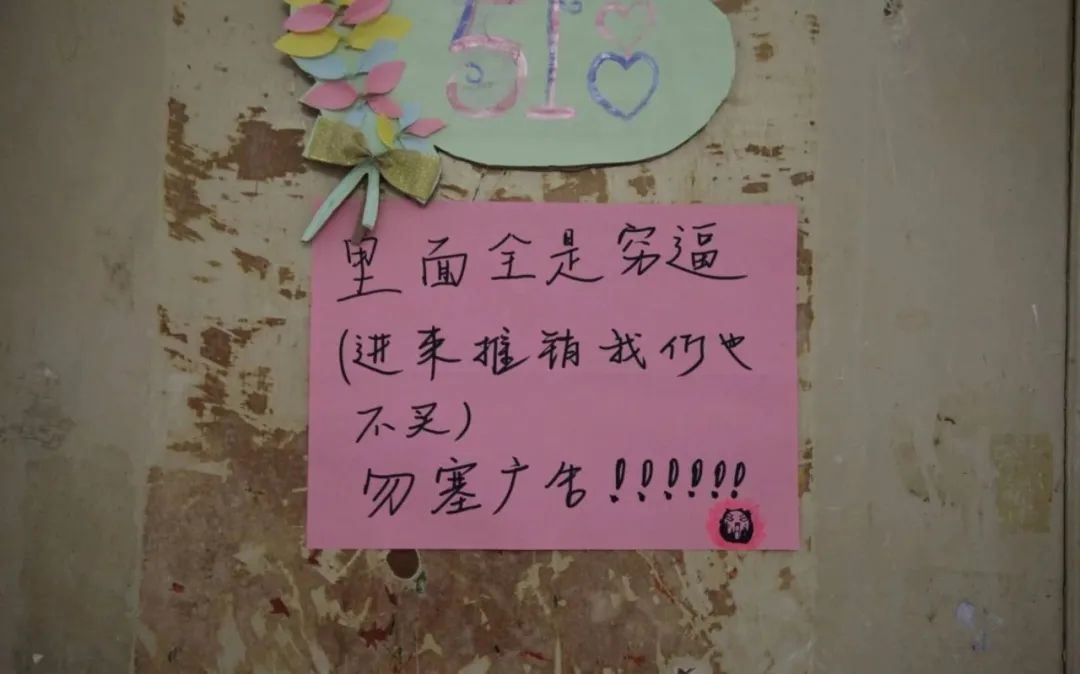 51
里面全是穷逼
(进来推销我们也
不买)
勿塞广告!!!!!!